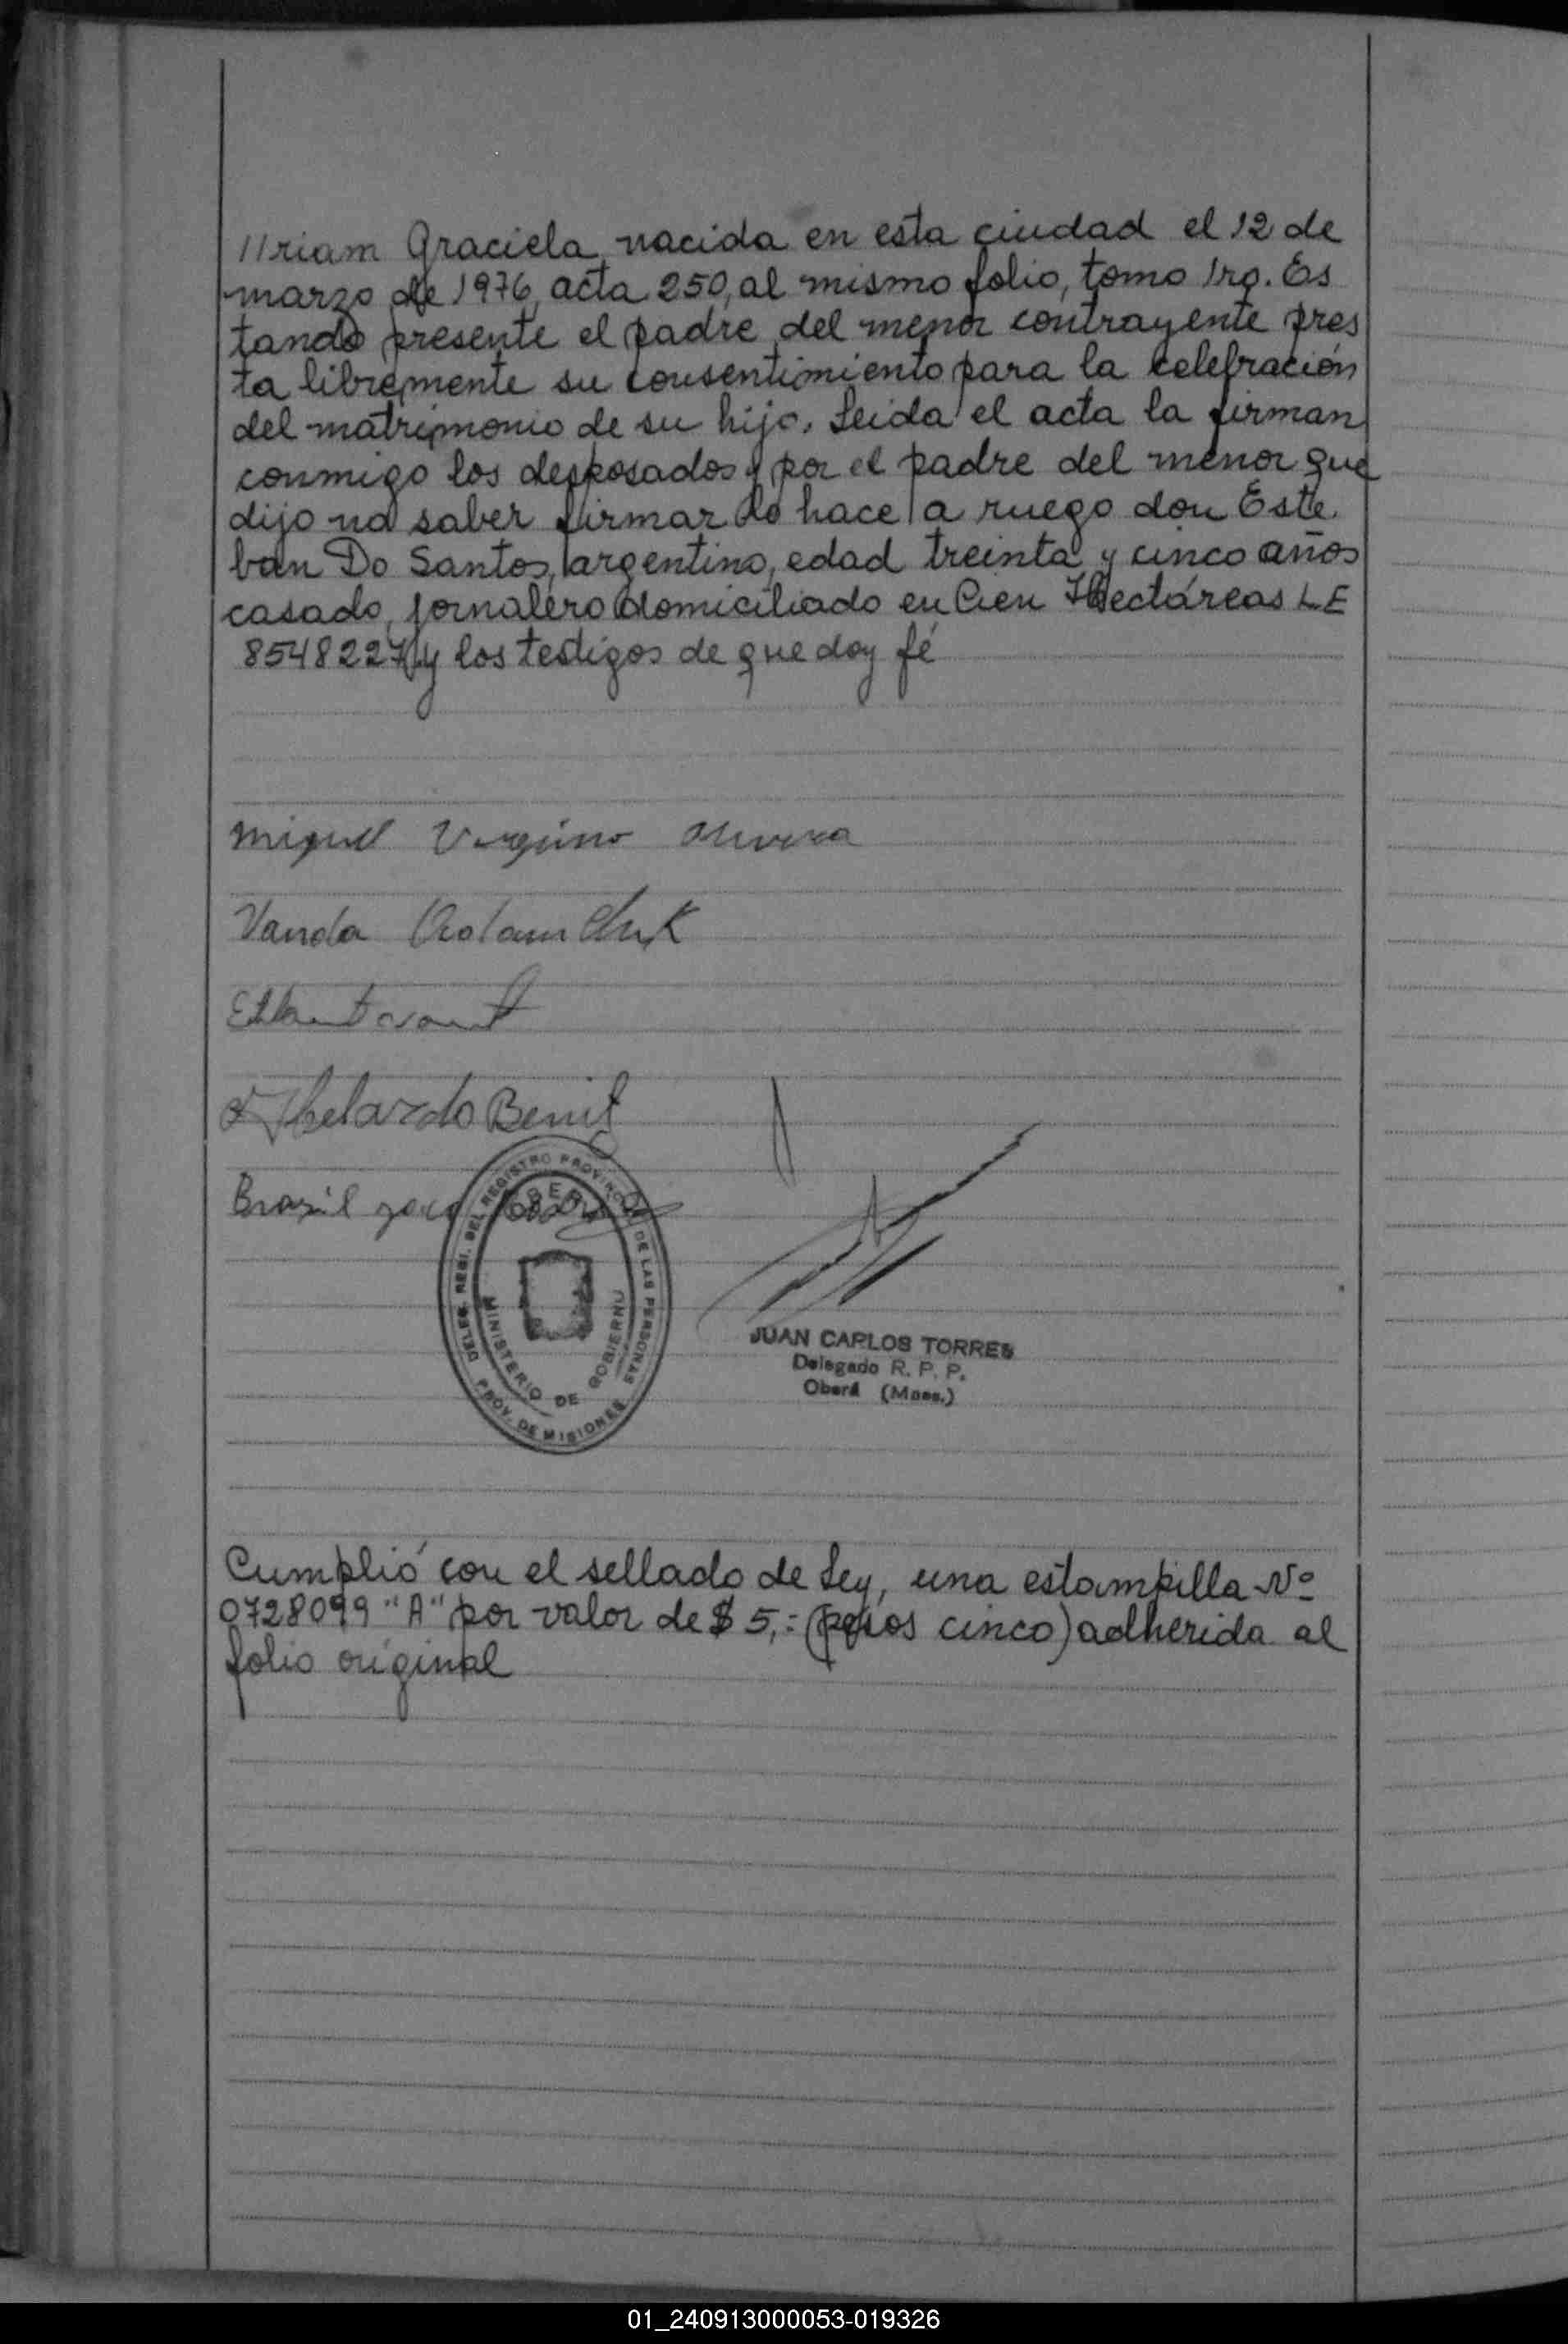 //riam Graciela, nacida en esta ciudad el 12 de
marzo de 1976, acta 250, al mismo folio, tomo 1ro. Es
tando presente el padre del menor contrayente pres
ta libremente su consentimiento para la celebración
del matrimonio de su hijo. Leida el acta la firman
conmigo los desposados y por el padre del menor que
dijo no saber firmar lo hace a ruego don Este
ban Do Santos, argentino, edad treinta y cinco años
casado, jornalero domiciliado en Cien Hectáreas LE
8548227 y los testigos de que doy fé
Miguel Virginio Olivera
Vanda
Abelardo Beniz
Brasil
DELEG. REGI. DEL REGISTRO PROVINCIAL DE LAS PERSONAS
OBERA
MINISTERIO DE GOBIERNO
PROV. DE MISIONES
JUAN CARLOS TORRES
Delegado R. P. P.
Oberá (Mnes.)
Cumplió con el sellado de Ley, una estampilla Nº
0728099 "A" por valor de $ 5,= (pesos cinco) adherida al
folio original
01_240913000053-019326